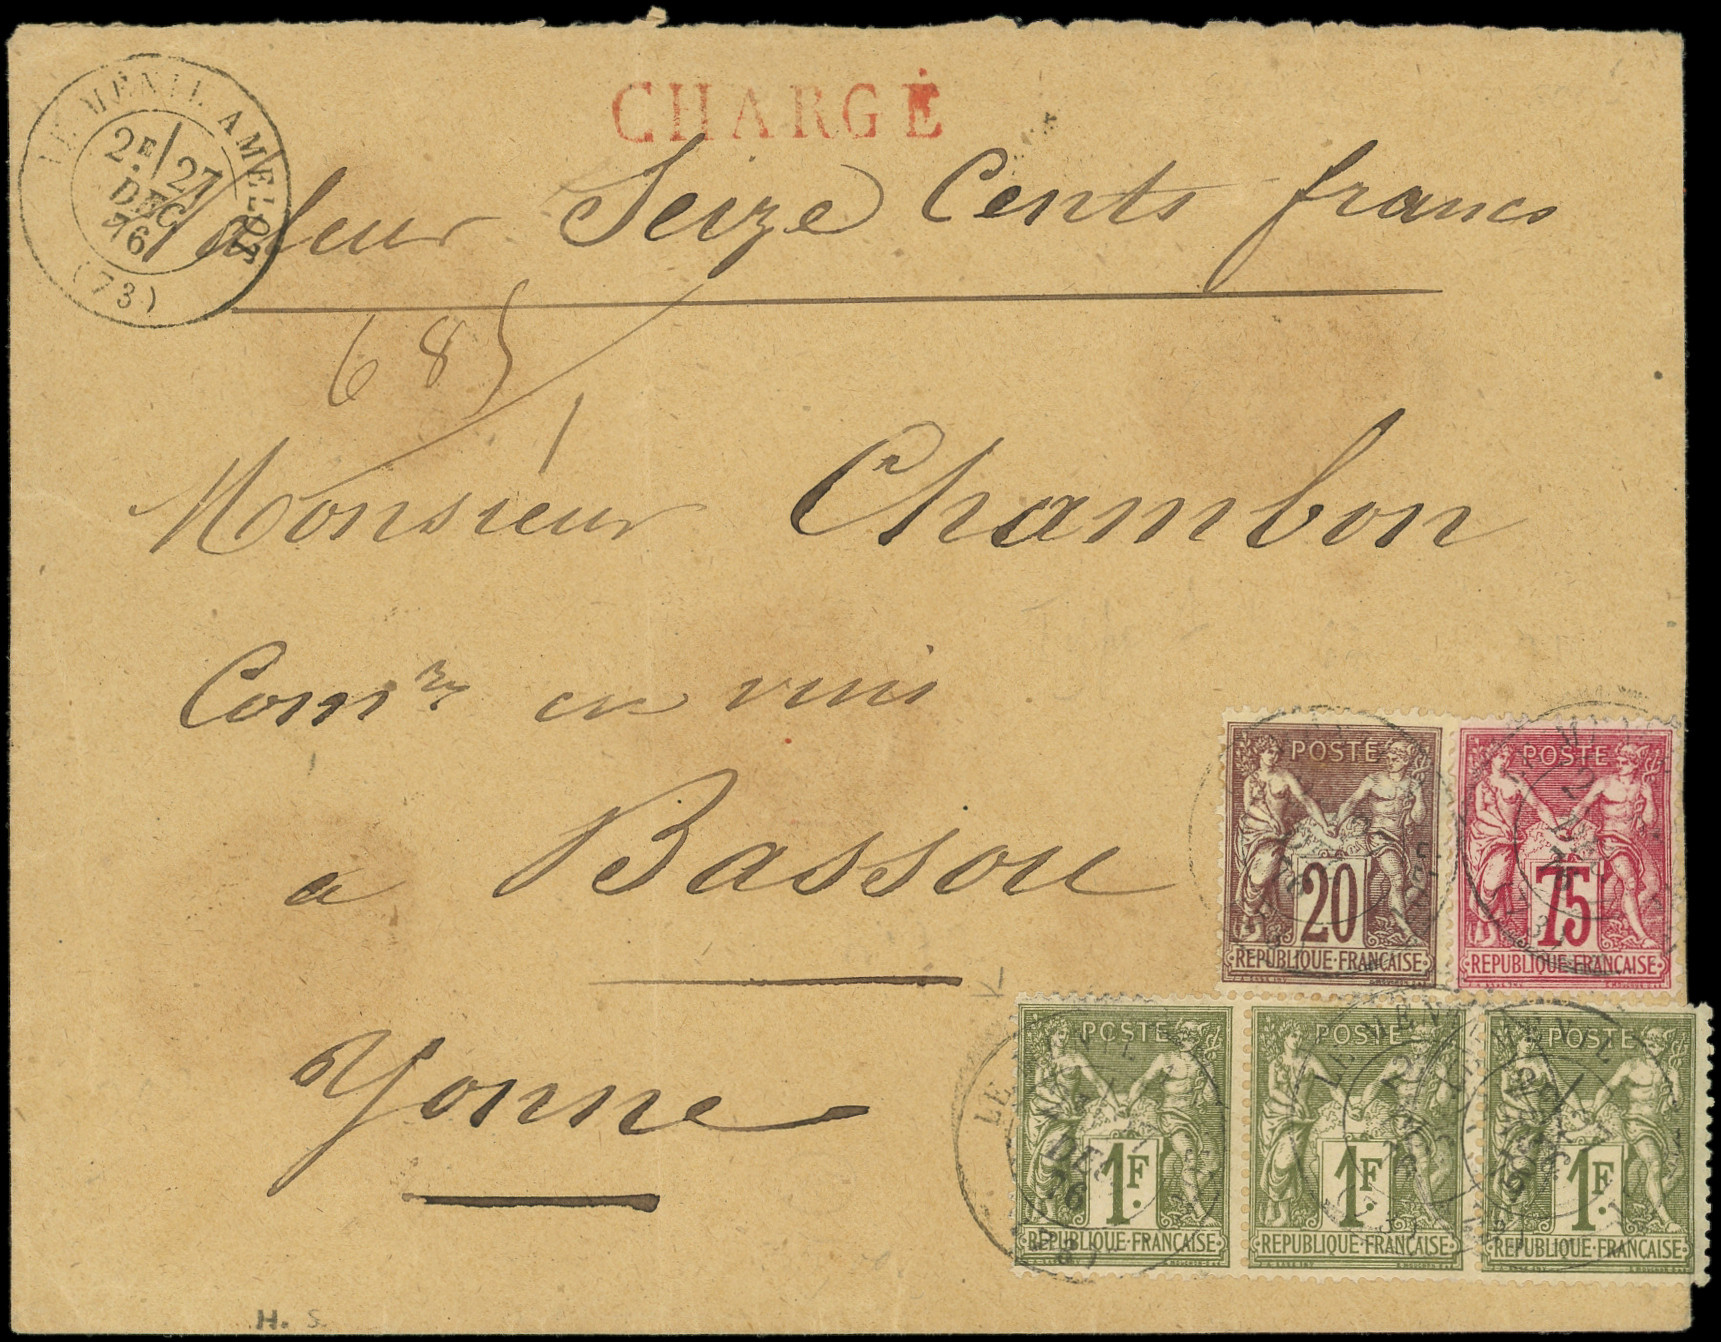 CHARGÉ
LE MÉNIL-AMELOT
2E/27
DEC
76
(73)
Valeur Seize Cents francs
685
Monsieur Chambon
Comre en vins
à Bassou
Yonne
POSTE
20
REPUBLIQUE·FRANÇAISE
POSTE
75
REPUBLIQUE·FRANÇAISE
POSTE
1F.
REPUBLIQUE·FRANÇAISE
POSTE
1F.
REPUBLIQUE·FRANÇAISE
POSTE
1F.
REPUBLIQUE·FRANÇAISE
LE
DEC
76
H. S.